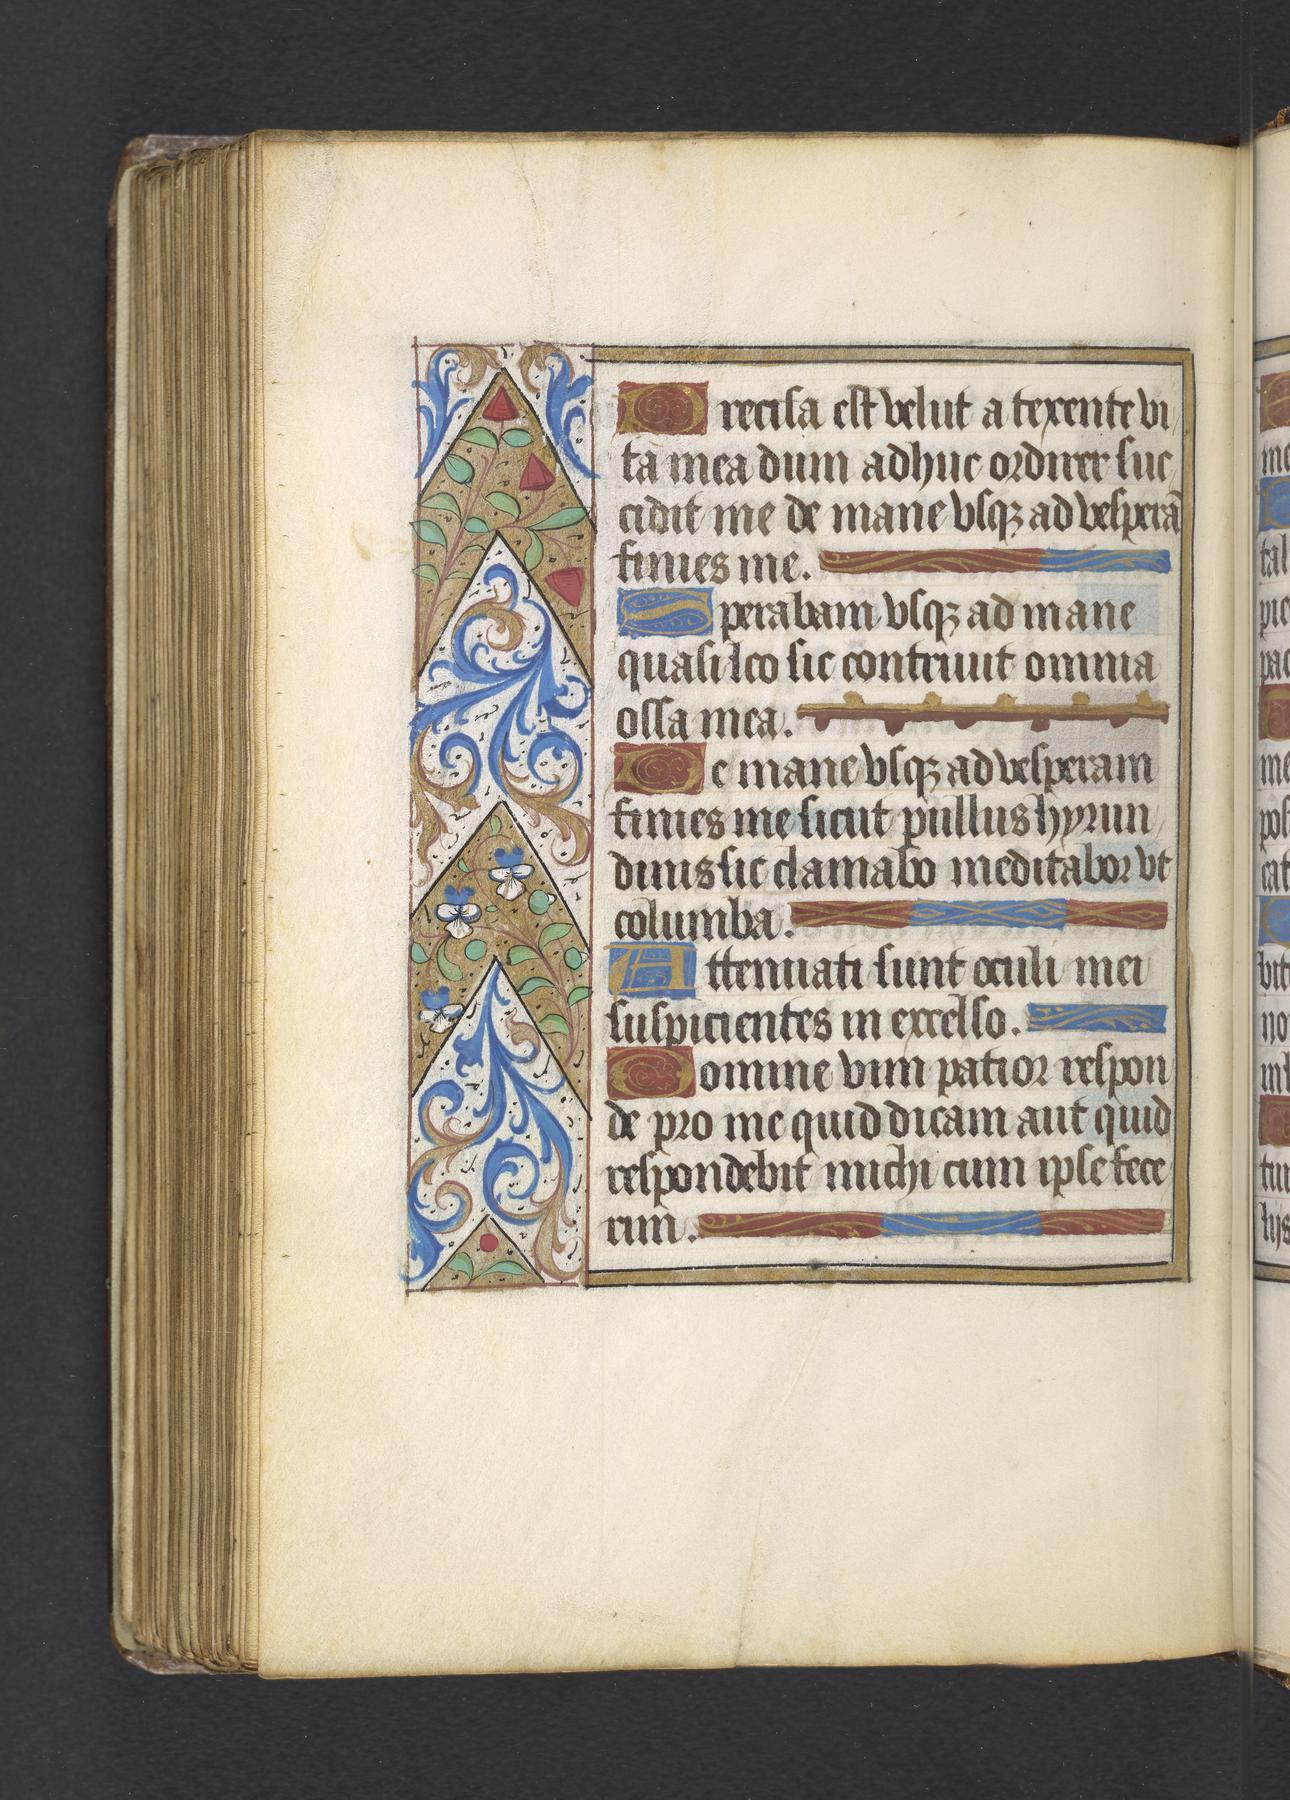 Precisa est velut a texente vi
ta mea dum adhuc ordirer suc
cidit me de mane vsqz ad vesperã
finies me.
Sperabam vsqz ad mane
quasi leo sic contriuit omnia
ossa mea.
De mane vsqz ad vesperam
finies me sicut pullus hyrun
dinis sic clamabo meditabor vt
columba.
Attenuati sunt oculi mei
suspicientes in excelso.
Domine vim patior respon
de pro me quid dicam aut quid
respondebit michi cum ipse fece
rim.